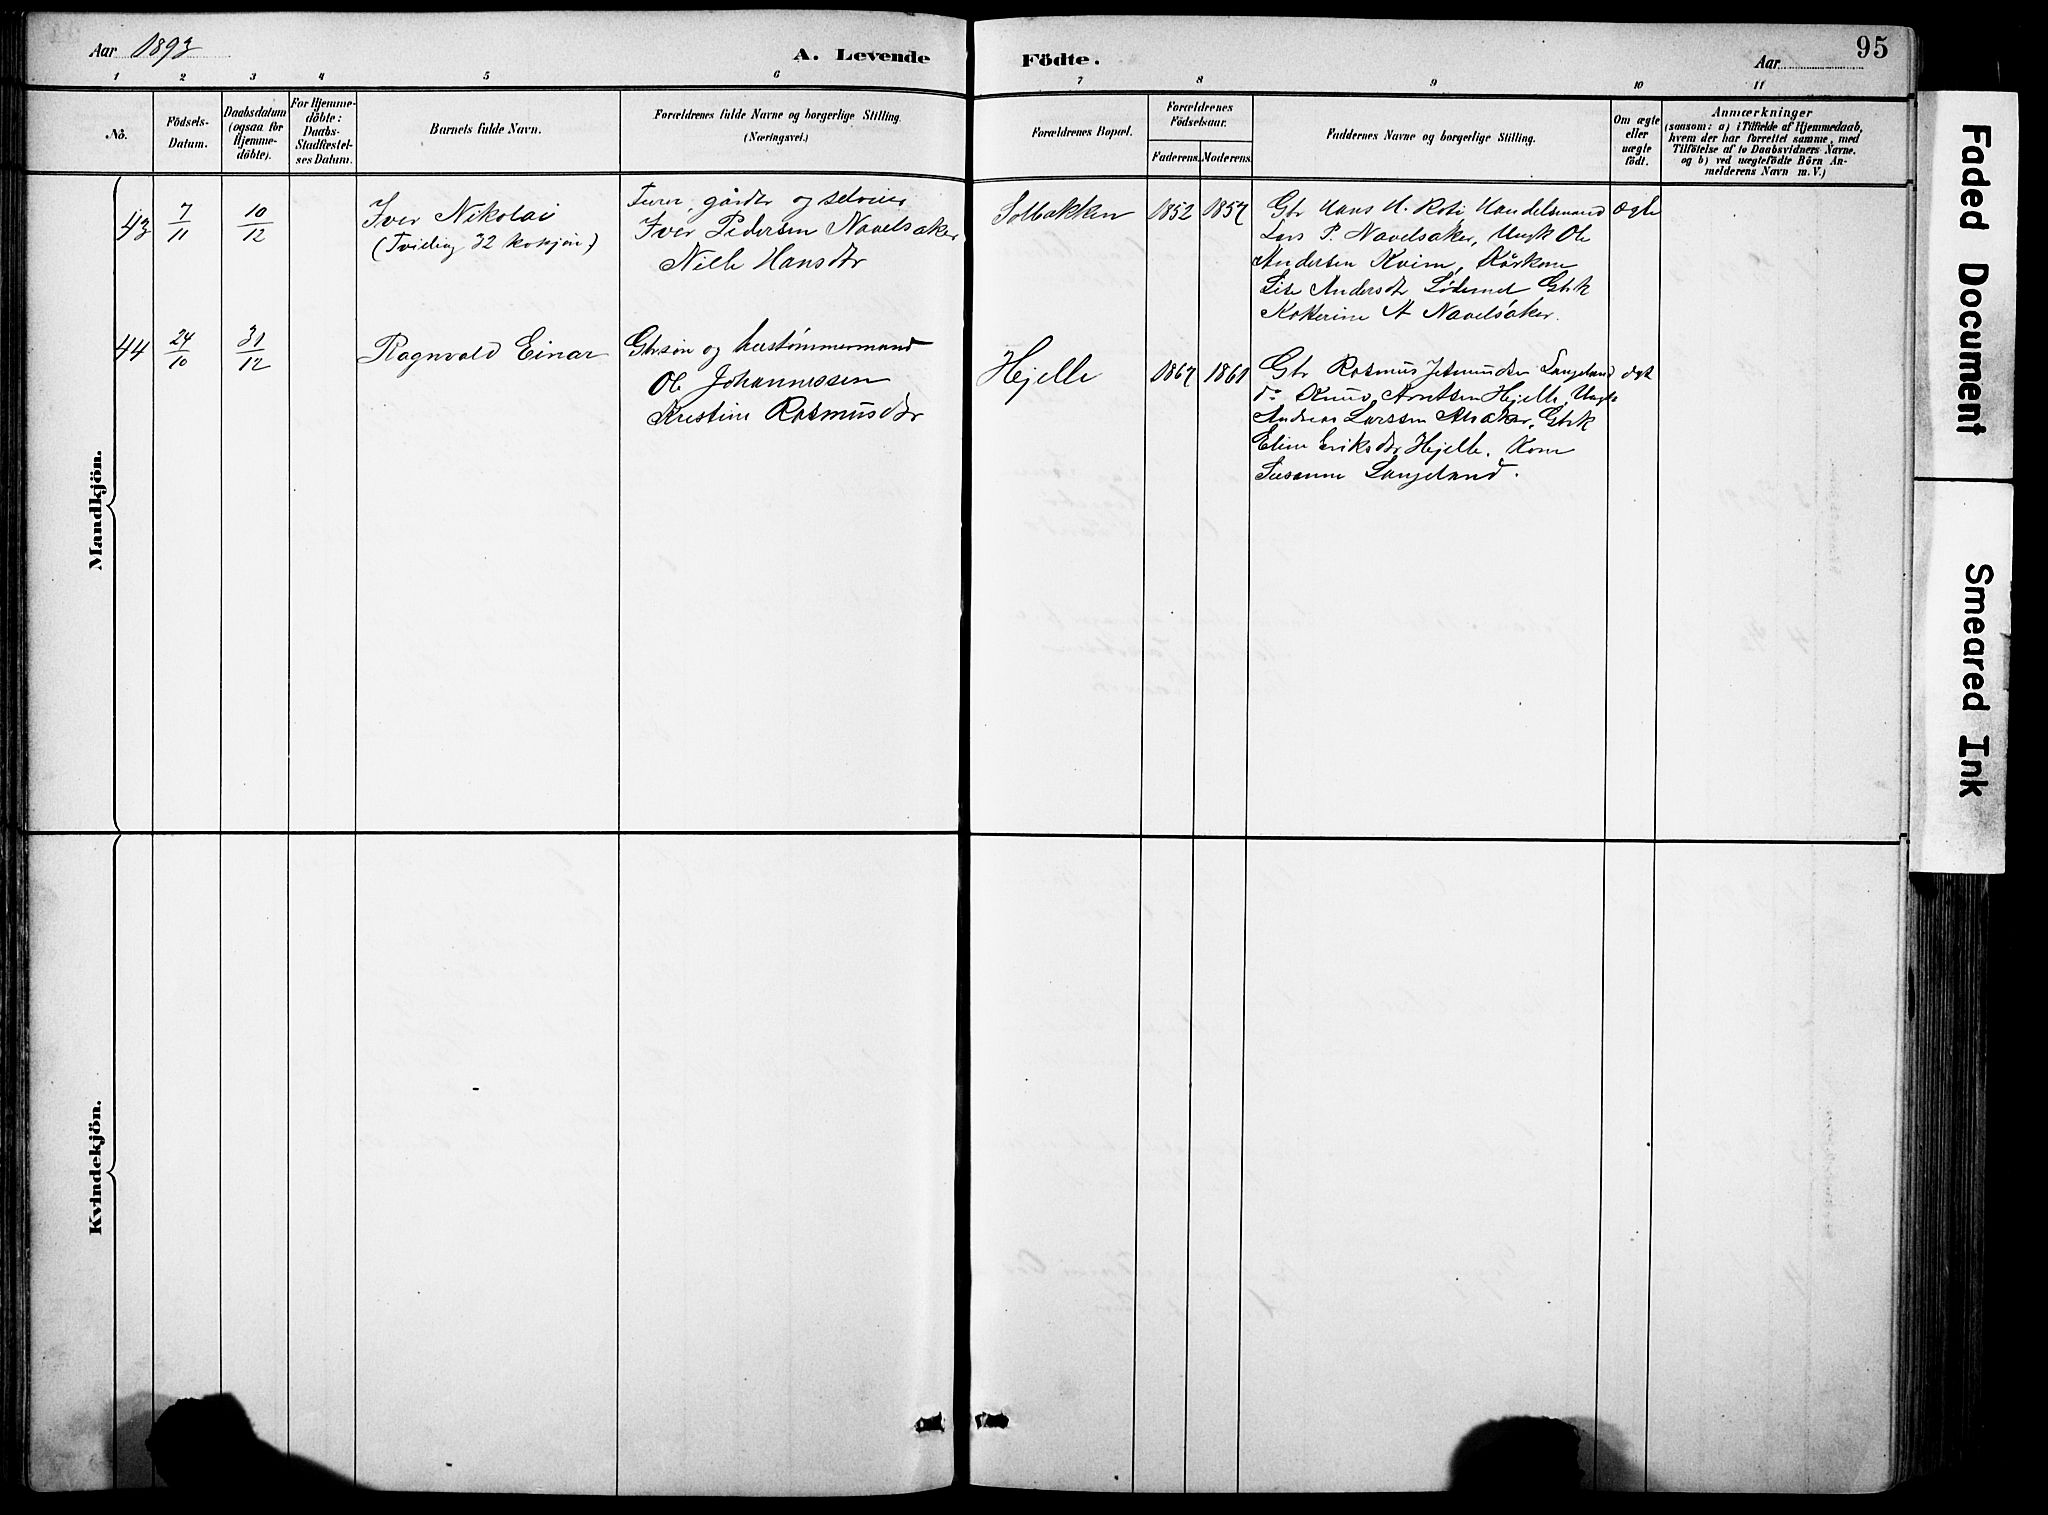 Aar 1893
A. Levende Födte.
Aar
95
1 2 3 4 5 6 7 8 9 10 11
No.
Födsels-
Datum.
Daabsdatum
(ogsaa for
Hjemme-
döbte).
For Hjemme-
döbte:
Daabs-
Stadfæstel-
ses Datum.
Barnets fulde Navn.
Forældrenes fulde Navne og borgerlige Stilling.
(Næringsvei.)
Forældrenes Bopæl.
Forældrenes
Födselsaar.
Faderens. Moderens.
Faddernes Navne og borgerlige Stilling.
Om ægte
eller
uægte
födt.
Anmærkninger
(saasom: a) i Tilfælde af Hjemmedaab,
hvem der har forrettet samme, med
Tilföielse af to Daabsvidners Navne.
og b) ved uægtefödte Börn An-
melderens Navn m. V.)
Mandkjön.
43
7/11
10/12
Iver Nikolai
(Tvilling 32 kvkjön.)
gårdbr og selveier
Iver Pedersen Navelsaker
Nille Hansdtr
Solbakken
1852 1857
Gbr Hans H. Roti Handelsmand
Lars P. Navelsaker, Ungk Ole
Andersen Kvien, Kårkone
Lise Andersdtr Lødemel Gbrk
Katterine A Navelsaker.
ægte
44
24/10
31/12
Ragnvald Einar
Gbrsøn og hustømmermand
Ole Johannessen
Kristine Rasmusdtr
Hjelle
1867 1861
Gbr Rasmus Langeland
do Knud Arntsen Hjelle, Ungk
Andreas Larssen Gbrk
Eline Eriksdtr Hjelle. Kone
Susanne Langeland.
ægte
Kvindekjön.
Faded Document
Smeared Ink